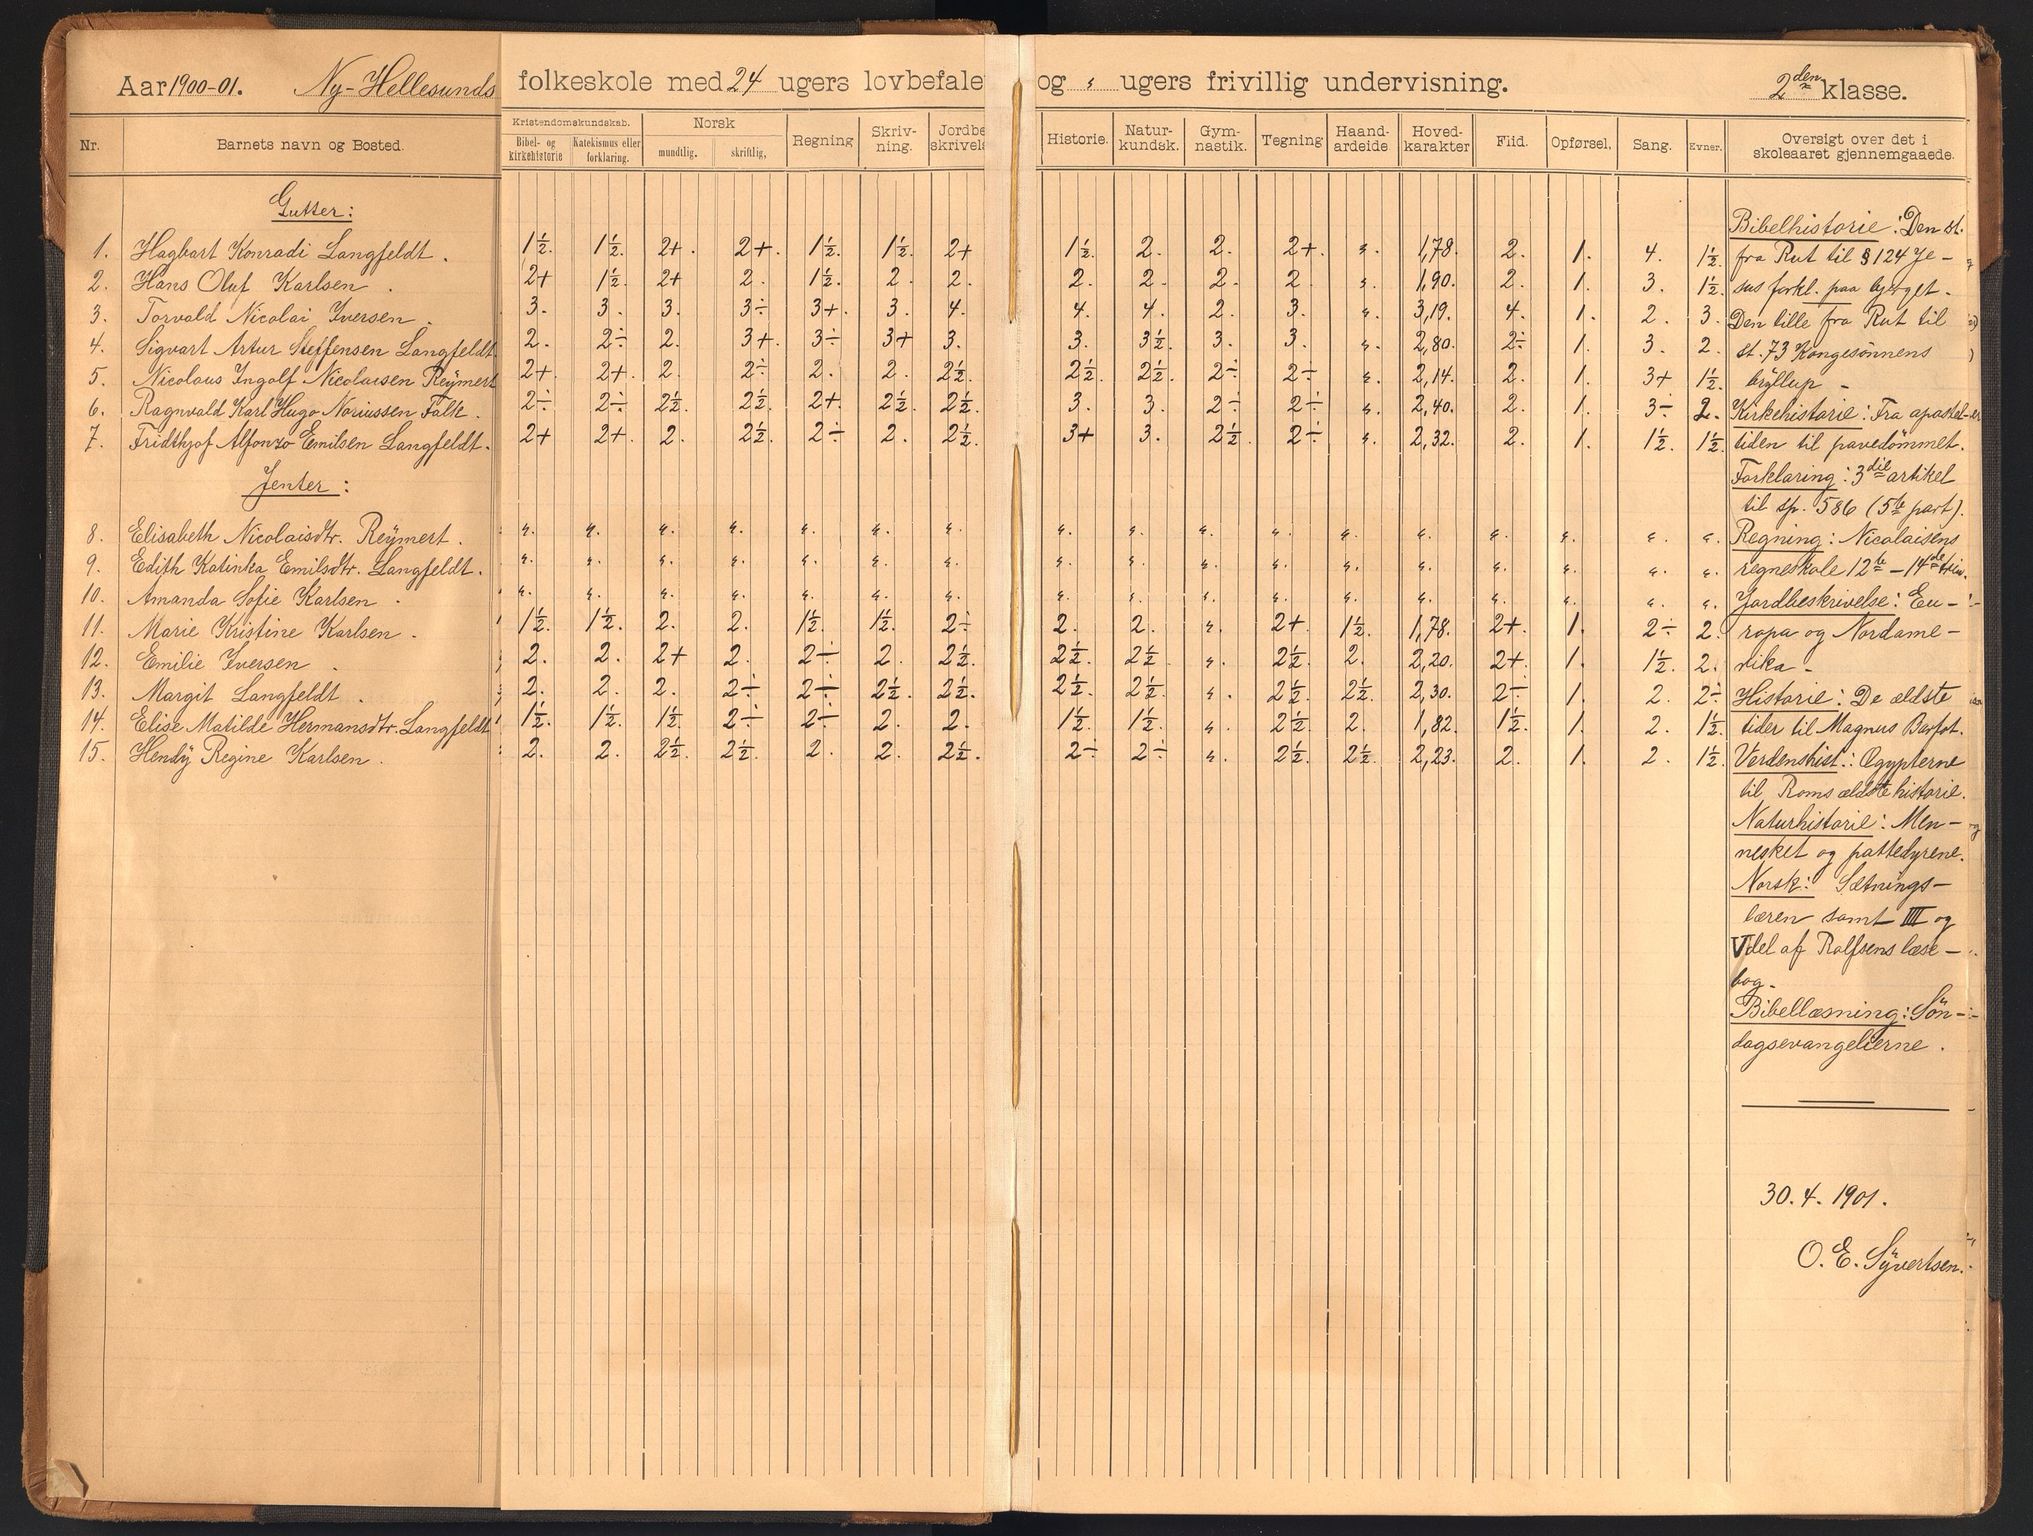 Aar 1900-01. Ny-Hellesunds folkeskole med 24 ugers lovbefale og " ugers frivillig undervisning. 2den klasse.
Nr. Barnets navn og Bosted. Kristendomskundskab. Bibel- og kirkehistorie Katekismus eller forklaring. Norsk mundtlig. skriftlig, Regning Skriv-ning. Jordbe skrivels Historie. Natur-kundsk. Gym-nastik. Tegning Haand-arbeide Hoved-karakter Flid. Opførsel, Sang. Evner. Oversigt over det i skoleaaret gjennemgaaede.
Gutter:
1. Hagbart Konradi Langfeldt. 1½. 1½. 2+ 2+. 1½. 1½. 2+ 1½. 2. 2. 2+. " 1,78. 2. 1. 4. 1½.
2. Hans Oluf Karlsen. 2+ 1½. 2+ 2. 1½. 2. 2. 2. 2. 2. 2. " 1,90. 2. 1. 3. 1½.
3. Torvald Nicolai Iversen. 3. 3. 3. 3÷ 3+. 3. 4. 4. 4. 2. 3. " 3,19. 4. 1. 2. 3.
4. Sigvart Artur Steffensen Langfeldt. 2. 2÷ 2. 3+ 3÷ 3+ 3. 3. 3½. 3. 3. " 2,80. 2÷ 1. 3. 2.
5. Nicolaus Ingolf Nicolaisen Reÿmert 2+ 2+. 2. 2÷ 2. 2. 2½. 2½. 2½. 2÷ 2÷ " 2,14. 2. 1. 3+ 1½.
6. Ragnvald Karl Hugo Noriussen Falk. 2÷ 2÷ 2½ 2½ 2+ 2½. 2½. 3. 3. 2÷ 2÷ " 2,40. 2. 1. 3÷ 2.
7. Fridthjof Alfonzo Emilsen Langfeldt. 2+ 2+. 2. 2½ 2÷ 2. 2½ 3+ 3. 2½ 2÷ " 2,32. 2. 1. 1½. 1½
Jenter:
8. Elisabeth Nicolaisdtr. Reÿmert. " " " " " " " " " " " " " " " " "
9. Edith Katinka Emilsdtr. Langfeldt. " " " " " " " " " " " " " " " " "
10. Amanda Sofie Karlsen. " " " " " " " " " " " " " " " " "
11. Marie Kristine Karlsen. 1½. 1½. 2. 2. 1½ 1½. 2÷ 2. 2. " 2+. 1½. 1,78. 2+ 1. 2÷ 2.
12. Emilie Iversen. 2. 2. 2+ 2. 2÷ 2. 2½ 2½ 2½ " 2½ 2. 2,20. 2+. 1. 1½ 2.
13. Margit Langfeldt. 2. 2. 2. 2÷ 2÷ 2½ 2½. 2½. 2½ " 2½ 2½. 2,30. 2÷ 1. 2. 2÷
14. Elise Matilde Hermansdtr. Langfeldt 1½. 1½. 1½ 2÷ 2÷ 2. 2. 1½ 1½. " 2½ 2. 1,82. 1½. 1. 2. 1½
15. Hendÿ Regine Karlsen. 2. 2. 2½ 2½. 2. 2. 2½. 2÷ 2÷ " 2½ 2½. 2,23. 2. 1. 2. 1½.
Bibelhistorie: Den st.
fra Rut til § 124 Je-
sus forkl. paa bjerget.
Den lille fra Rut til
st. 73 Kongesønnens
brÿllup -
Kirkehistorie: Fra apostel-
tiden til pavedømmet.
Forklaring: 3die artikel
til sp. 586 (5te part).
Regning: Nicolaisens
regneskole 12te - 14de trin.
Jordbeskrivelse: Eu-
ropa og Nordame-
rika -
Historie: De ældste
tider til Magnus Barfot.
Verdenshist.: Ægypterne
til Roms ældste historie.
Naturhistorie: Men-
nesket og pattedyrene.
Norsk: Sætnings-
læren samt III og
V del af Rolfsens læse-
bog.
Bibellæsning: Søn-
dagsevangelierne.
30.4.1901.
O. E. Sÿvertsen.